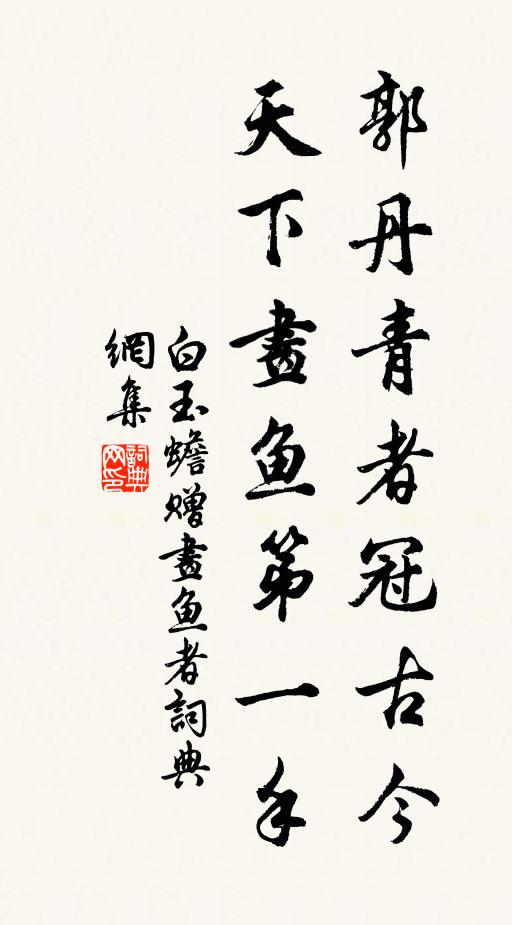 郭丹青者冠古今
天下畫魚第一手
白玉蟾贈畫魚者詞典
網集
詞典网印